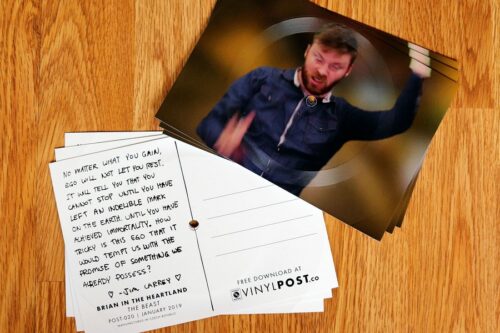 NO MATTER WHAT YOU GAIN,
EGO WILL NOT LET YOU REST.
IT WILL TELL YOU THAT YOU
CANNOT STOP UNTIL YOU HAVE
LEFT AN INDELIBLE MARK
ON THE EARTH. UNTIL YOU HAVE
ACHIEVED IMMORTALITY. HOW
TRICKY IS THIS EGO THAT IT
WOULD TEMPT US WITH THE
PROMISE OF SOMETHING WE
ALREADY POSSESS?
♡ -JIM CARREY ♡
BRIAN IN THE HEARTLAND
THE BEAST
POST-020 | JANUARY 2019
FREE DOWNLOAD AT
VINYLPOST.CO